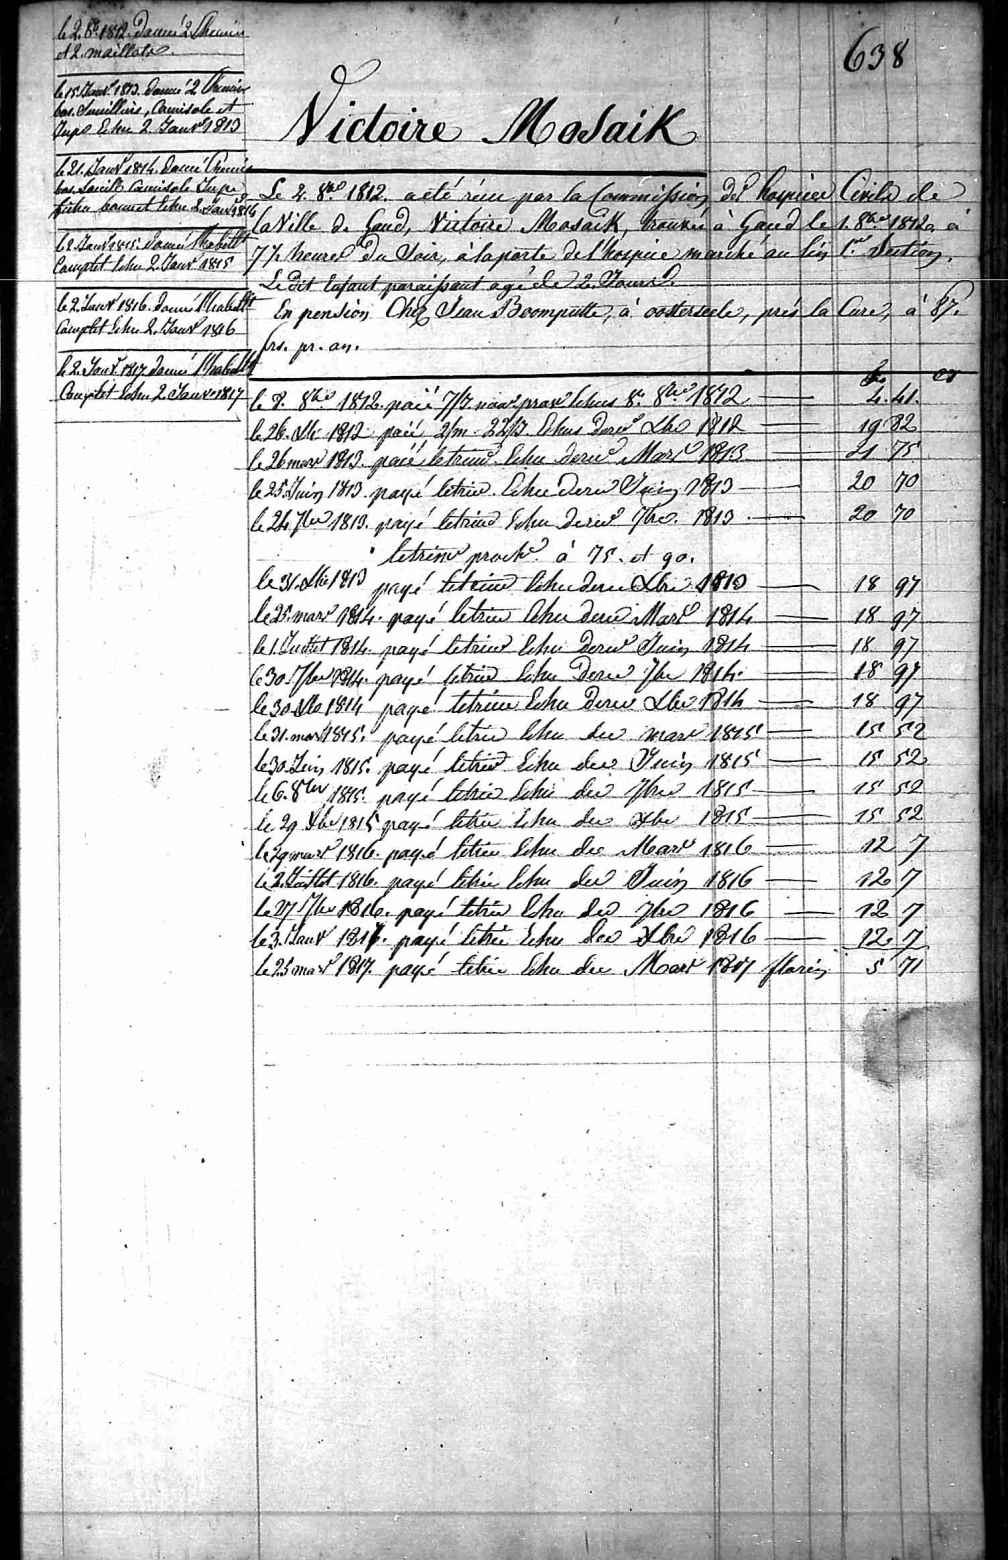 638
Victoire Mosaik
le 2. 8bre 1812. donné 2 Chemises
et 2 maillots.
le 15 Janvr 1813. donné 2 Chemises
bas. Souilliers, Camisole et
Jupe Echu 2 Janvr 1813
le 21. Janvr 1814. donné Chemise
bas. Camisole Jupe
fichu bonnet Echu 2 Janvr 1814
le 2 Janvr 1815. donné l'habillt
Complet Echu 2. Janvr 1815
le 2 Janvr 1816. donné l'habillt
Complet Echu 2. Janvr 1816
le 2. Janvr 1817 donné l'habillt
Complet Echu 2 Janvr 1817
Le 2. 8bre 1812. a eté réçu par la Commission des hospices Civils de
la Ville de Gand, Victoire Mosaik, trouvée à Gand le 1. 8bre 1812, à
7 1/2 heures du Soir, à la porte de l'hospice marché au lin 1re Section.
Le dit Enfant paraissant agé de 2. Jours.
En pension Chez Jean Boomputte, à oosterseele, près la Cure, à 87.
frs. pr. an.
fr. cs
le 8. 8bre 1812. paié 8bre 1812 — 2. 41
le 26. Xbre 1812 paié 2/m Echus derer Xbre 1812 — 19 82
le 26 mars 1813. paié le trime Echu derer Mars 1813 — 21 75
le 25. Juin 1813. payé le trim. Echu derer Juin 1813 — 20 70
le 24. 7bre 1813. payé le trime Echu derer 7bre. 1813 — 20 70
le trime proche à 75. et 90.
le 31. Xbre 1813 payé le trime Echu derer Xbre 1813 — 18 97
le 25. mars 1814. payé le trim Echu derer Mars 1814 — 18 97
le 1. Juillet 1814. payé le trim Echu derer Juin 1814 — 18 97
le 30. 7bre 1814. payé le trim Echu derer 7bre 1814. — 18 97
le 30 Xbre 1814 payé le trime Echu derer Xbre 1814 — 18 97
le 31. mars 1815. payé le trim Echu der mars 1815 — 15 52
le 30. Juin 1815. payé le trim Echu der Juin 1815 — 15 52
le 6. 8bre 1815. payé le trim Echu der 7bre 1815 — 15 52
le 29 Xbre 1815 payé le trim Echu der Xbre 1815 — 15 52
le 29 mars 1816. payé le trim Echu der Mars 1816 — 12 7
le 2. Juillet 1816. payé le trim Echu der Juin 1816 — 12 7
le 27 7bre 1816. payé le trim Echu der 7bre 1816 — 12 7
le 3. Janvr 1817. payé le trim Echu der Xbre 1816 — 12 7
le 25 mars 1817. payé le trim Echu der Mars 1817 florins 5 71